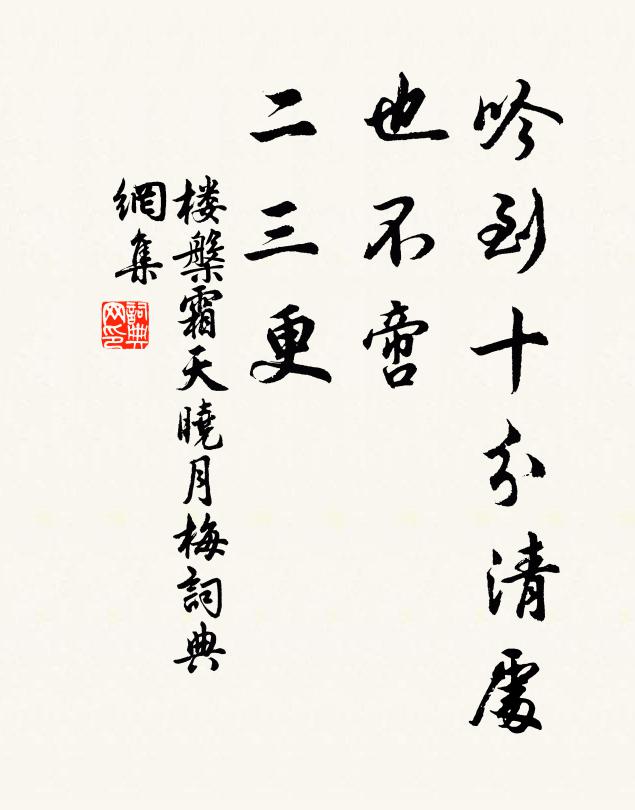 吟到十分清處
也不啻
二三更
楼槃霜天曉月梅詞典
網集
詞典
网印